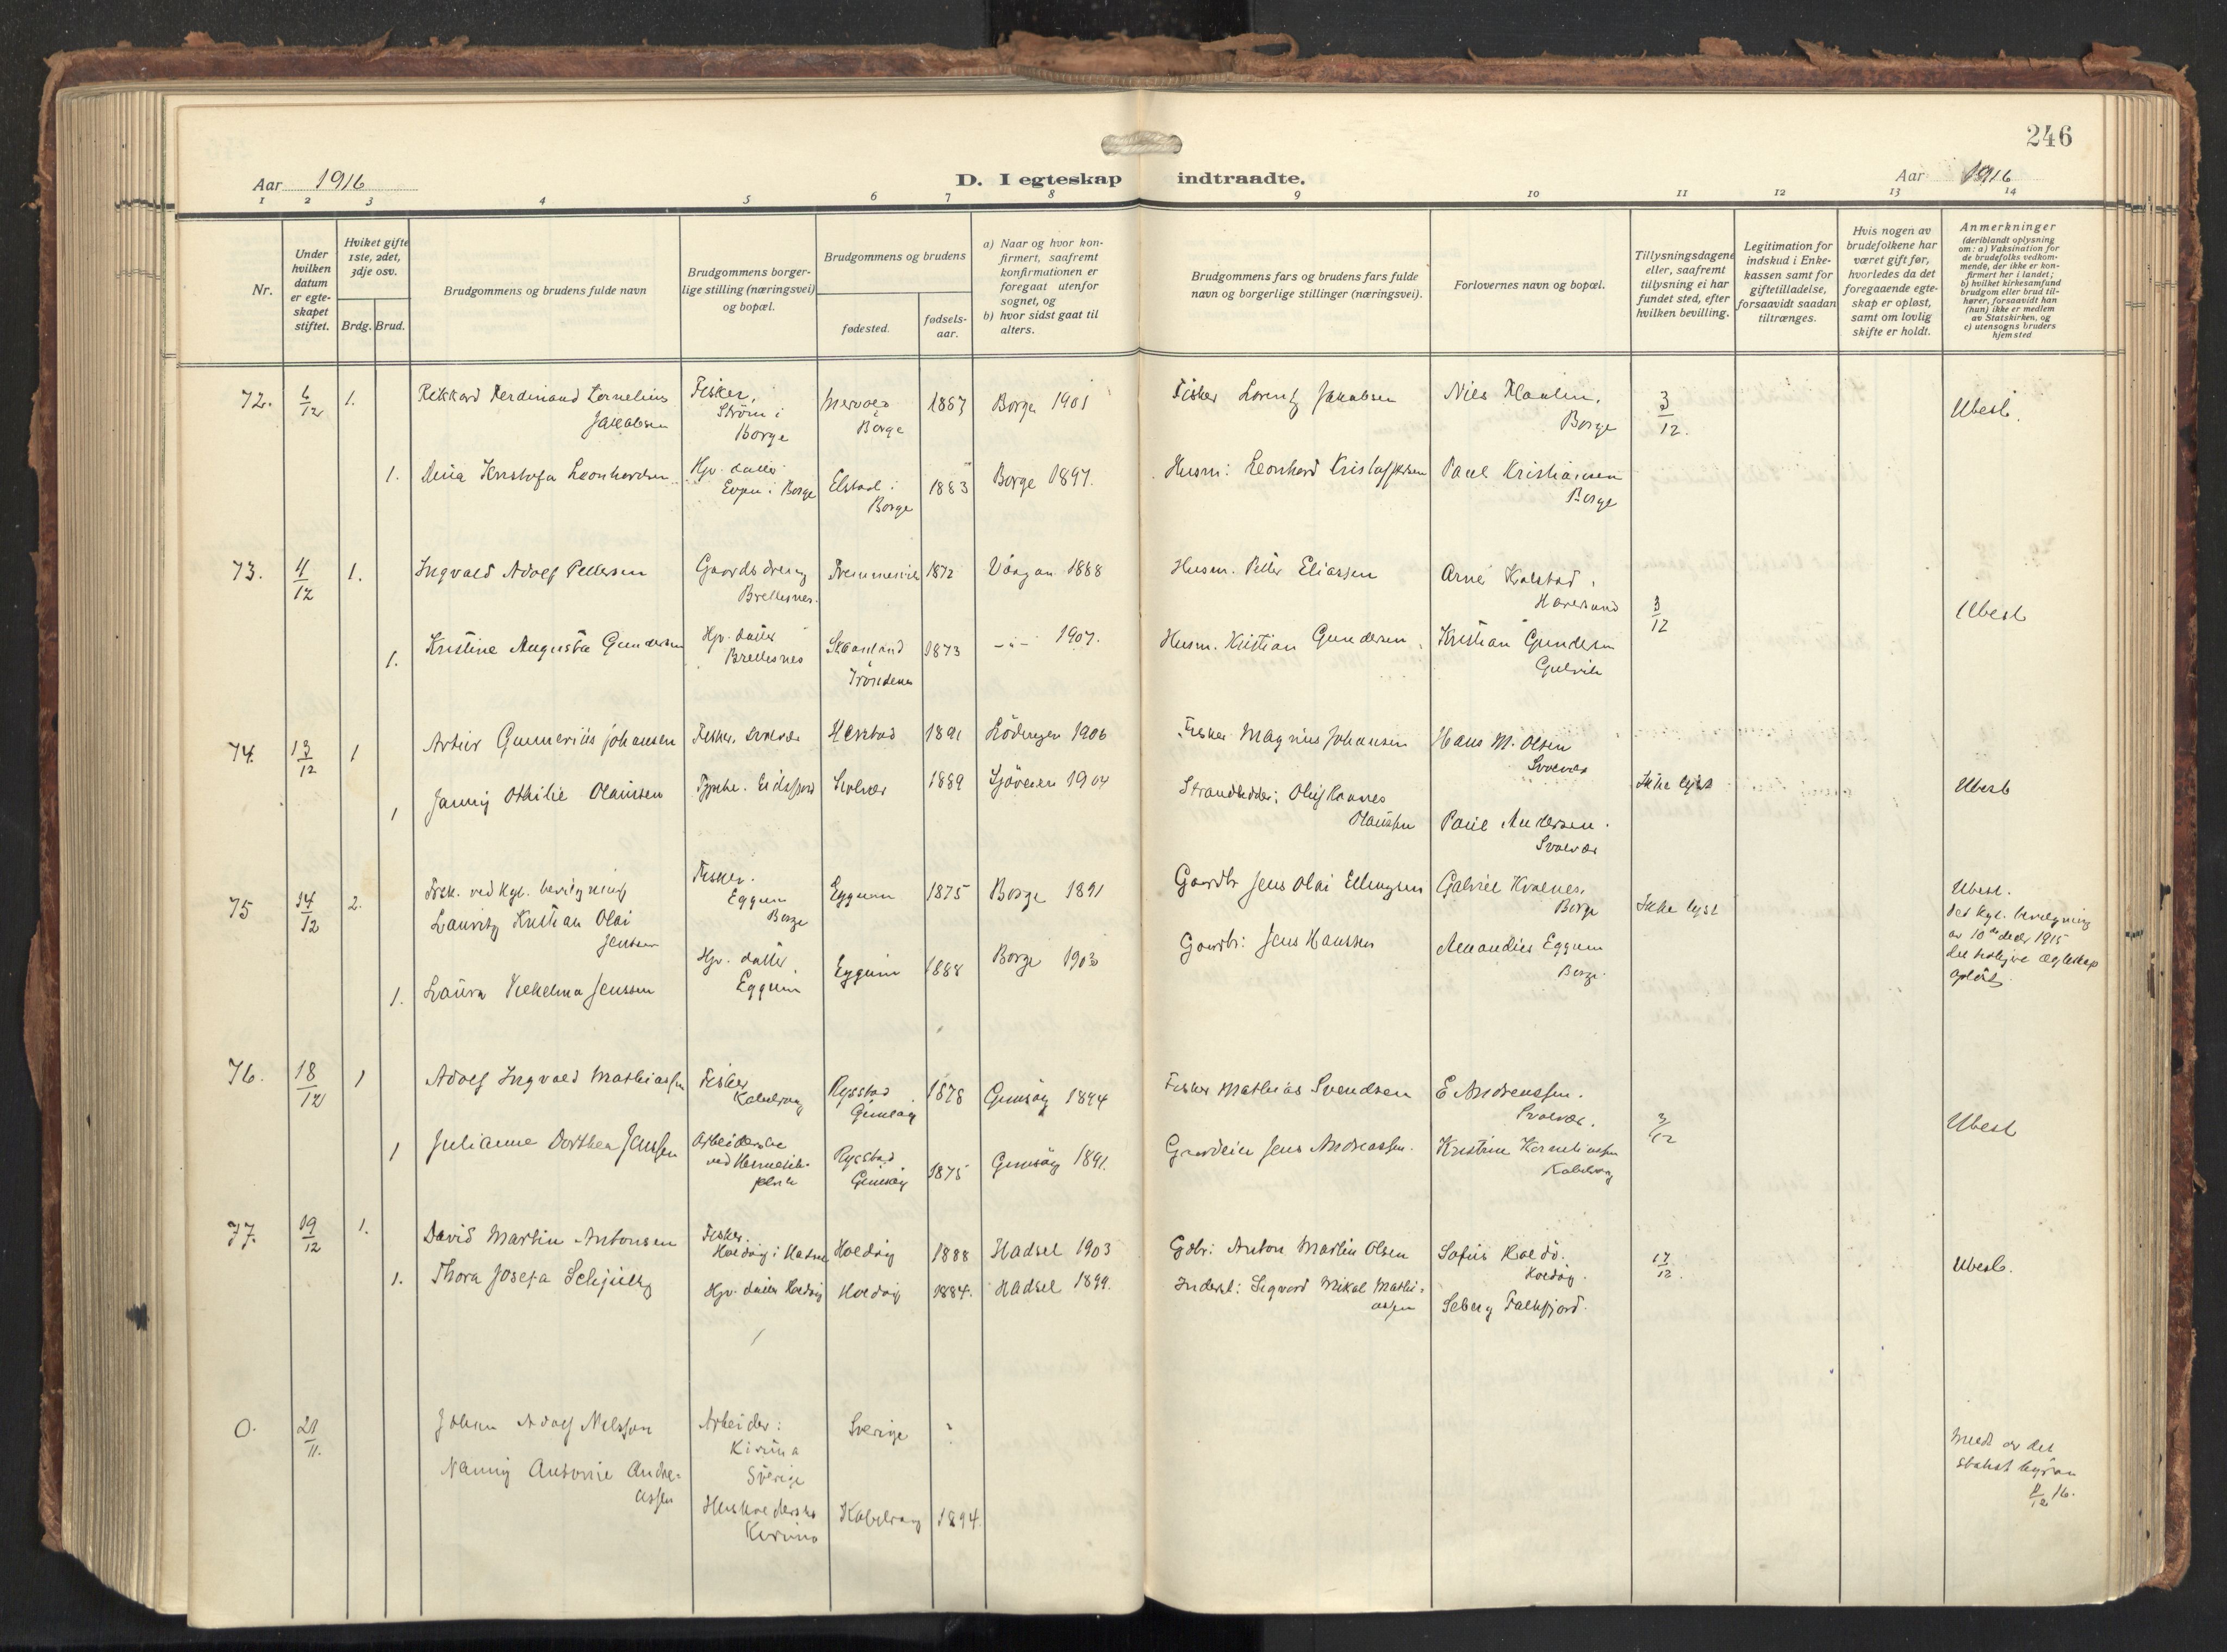 246
Aar 1916
D. I egteskap indtraadte.
Aar 1916
1 2 3 4 5 6 7 8 9 10 11 12 13 14
Nr.
Under hvilken datum er egteskapet stiftet.
Hviket gifte 1ste, 2det, 3dje osv.
Brdg. Brud.
Brudgommens og brudens fulde navn
Brudgommens borgerlige stilling (næringsvei) og bopæl.
Brudgommens og brudens
fødested.
fødselsaar.
a) Naar og hvor konfirmert, saafremt konfirmationen er foregaat utenfor sognet, og
b) hvor sidst gaat til alters.
Brudgommens fars og brudens fars fulde navn og borgerlige stillinger (næringsvei).
Forlovernes navn og bopæl.
Tillysningsdagene eller, saafremt tillysning ei har fundet sted, efter hvilken bevilling.
Legitimation for indskud i Enkekassen samt for giftetilladelse, forsaavidt saadan tiltrænges.
Hvis nogen av brudefolkene har været gift før, hvorledes da det foregaaende egteskap er opløst, samt om lovlig skifte er holdt.
Anmerkninger
(deriblandt oplysning om: a) Vaksination for de brudefolks vedkommende, der ikke er konfirmert her i landet;
b) hvilket kirkesamfund brudgom eller brud tilhører, forsaavidt han (hun) ikke er medlem av Statskirken, og
c) utensogns bruders hjemsted
72. 1. Rikkard Ferdinand Kornelius Jakobsen Fisker, Strøm i Borge Borge Borge 1901 Fisker Lorentz Jakobsen Nils Borge 3/12. Ubesl.
1. Dina Kristofa Leonhardsen Hjv. datter i Borge Elstad i Borge 1883 Borge 1897. Husm: Leonhard Kristoffersen Paul Kristiansen Borge
73. 4/12 1. Ingvald Adolf Pettersen Gaardsdreng Brettesnes. 1872 Vaagan 1888 Husm. Petter Eliassen Arne Kolstad, 3/12 Ubesl
1. Kristine Augusta Gundersen Hjv. datter Brettesnes Skaanland Trondenes 1873 -"- 1907. Husm. Kristian Gundersen, Kristian Gundersen Gulvik
74. 13/12 1 Artur Gunnerius Johansen Fisker, Svolvær 1891 Lødingen 1906 Fisker Magnus Johansen Hans M. Olsen Svolvær Ikke lyst Ubesl
1 Othilie Olaussen Svolvær 1889 1904 Olaussen Andersen. Svolvær
75 14/12 2. Frsk. ved kgl. bevilgning Lauritz Kristian Olai Jensen Fisker. Eggum Borge Eggum 1875 Borge 1891 Gaardbr Jens Olai Ellingsen Gabriel Kvalnes, Borge Ikke lyst Ubesl. Ved kgl. bevilgning av 10de decbr 1915 det tidligere ægteskap opløst.
1. Laura Vilhelma Jenssen Hjv. datter Eggum Eggum 1888 Borge 1903 Gaardbr: Jens Hanssen Eggum Borge.
76. 18/12 1 Adolf Ingvald Mathiassen Fisker Kabelvaag Rystad Gimsøy 1878 Gimsøy 1894 Fisker Mathias Svendsen E. Andreassen. Svolvær. 3/12 Ubesl
1 Julianne Dorthea Jenssen Arbeiderske ved Rystad Gimsøy 1875 Gimsøy 1891. Gaardeier Jens Andreassen. Kristine Korneliussen Kabelvaag
77. 19/12 1. David Martin Antonsen Fisker. Holdøy i Hadsel Holdøy 1888 Hadsel 1903 Gdbr: Anton Martin Olsen Sofus Holdø. Holdøy. 17/12. Ubesl.
1. Thora Josefa Schjelberg Hjv. datter Holdøy Holdøy 1884. Hadsel 1899. Inderst: Sigvard Mikal Mathiassen Seberg Falkfjord.
0. 21/11. Johan Adolf Nilsson Arbeider: Kiruna Sverige Sverige ?
Nanny Antonie Andreassen Husholderske Kiruna Kabelvaag 1894.
Medd av det statist byraa